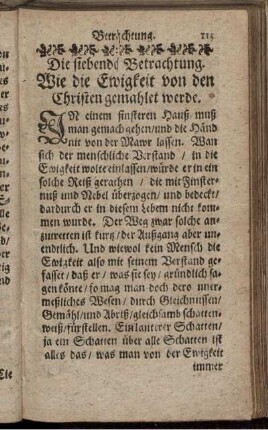 Betrachtung. 215
Die siebende Betrachtung.
Wie die Ewigkeit von den
Christen gemahlet werde.
IN einem finsteren Hauß muß
man gemach gehen / und die Händ
nit von der Mawr lassen. Wan
sich der menschliche Verstand / in die
Ewigkeit wolte einlassen / würde er in ein
solche Reiß gerathen / die mit Finster-
nuß und Nebel überzogen / und bedeckt /
dardurch er in diesem Leben nicht kom-
men wurde. Der Weg zwar solche an-
zutretten ist kurz / der Außgang aber un-
endtlich. Und wiewol kein Mensch die
Ewigkeit also mit seinem Verstand ge-
fasset / daß er / was sie sey / gründlich sa-
gen könte / so mag man doch dero uner-
meßliches Wesen / durch Gleichnussen /
Gemähl / und Abriß / gleichsamb schatten-
weiß / fürstellen. Ein lauterer Schatten /
ja ein Schatten über alle Schatten ist
alles das / was man von der Ewigkeit
immer